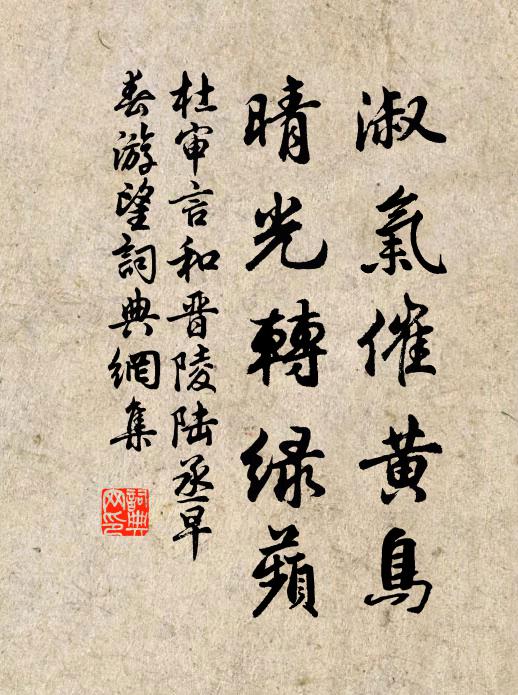 淑氣催黃鳥
晴光轉綠蘋
杜审言和晋陵陆丞早
春游望詞典網集
詞典
网印